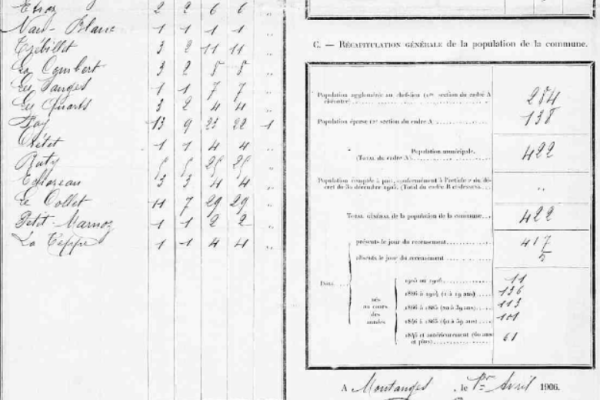 2 2 6 6 "
Nant-Blanc 1 1 1 1 "
Trébillet 3 2 11 11 "
La Combert 3 2 8 8 "
Les 1 1 7 7 "
Les 3 2 4 4 "
13 9 23 22 1
1 1 4 4 "
5 5 25 25 "
3 3 4 4 "
Le Collet 11 7 29 29 "
Petit-Marnoz 1 1 2 2 "
La Teppe 1 1 4 4 "
C. — RÉCAPITULATION GÉNÉRALE de la population de la commune.
Population agglomérée au chef-lieu (1re section du cadre A ci-dessus) 284
Population éparse (2e section du cadre A) 138
Population municipale.
(Total du cadre A) 422
Population comptée à part, conformément à l'article 2 du décret du 30 décembre 1905. (Total du cadre B ci-dessus) "
Total général de la population de la commune 422
présents le jour du recensement 417
absents le jour du recensement 5
Dont
nés au cours des années
1905 ou 1906 11
1886 à 1904 (2 à 19 ans) 136
1866 à 1885 (20 à 39 ans) 113
1846 à 1865 (40 à 59 ans) 101
1845 et antérieurement (60 ans et plus) 61
A Montanges, le 1er Avril 1906.